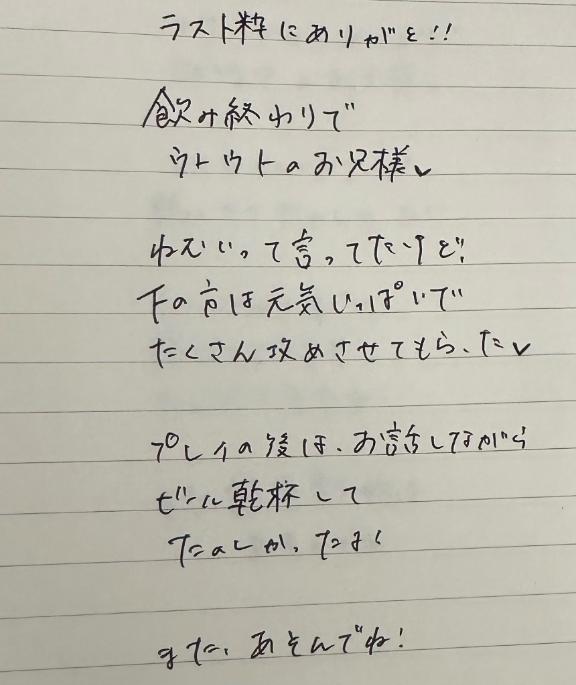 ラスト枠にありがと!!
飲み終わりで
ウトウトのお兄様♥
ねむいって言ってたけど!
下の方は元気いっぱいで
たくさん攻めさせてもらった♥
プレイの後は、お話しながら
ビール乾杯して
たのしかったよ
また、あそんでね!